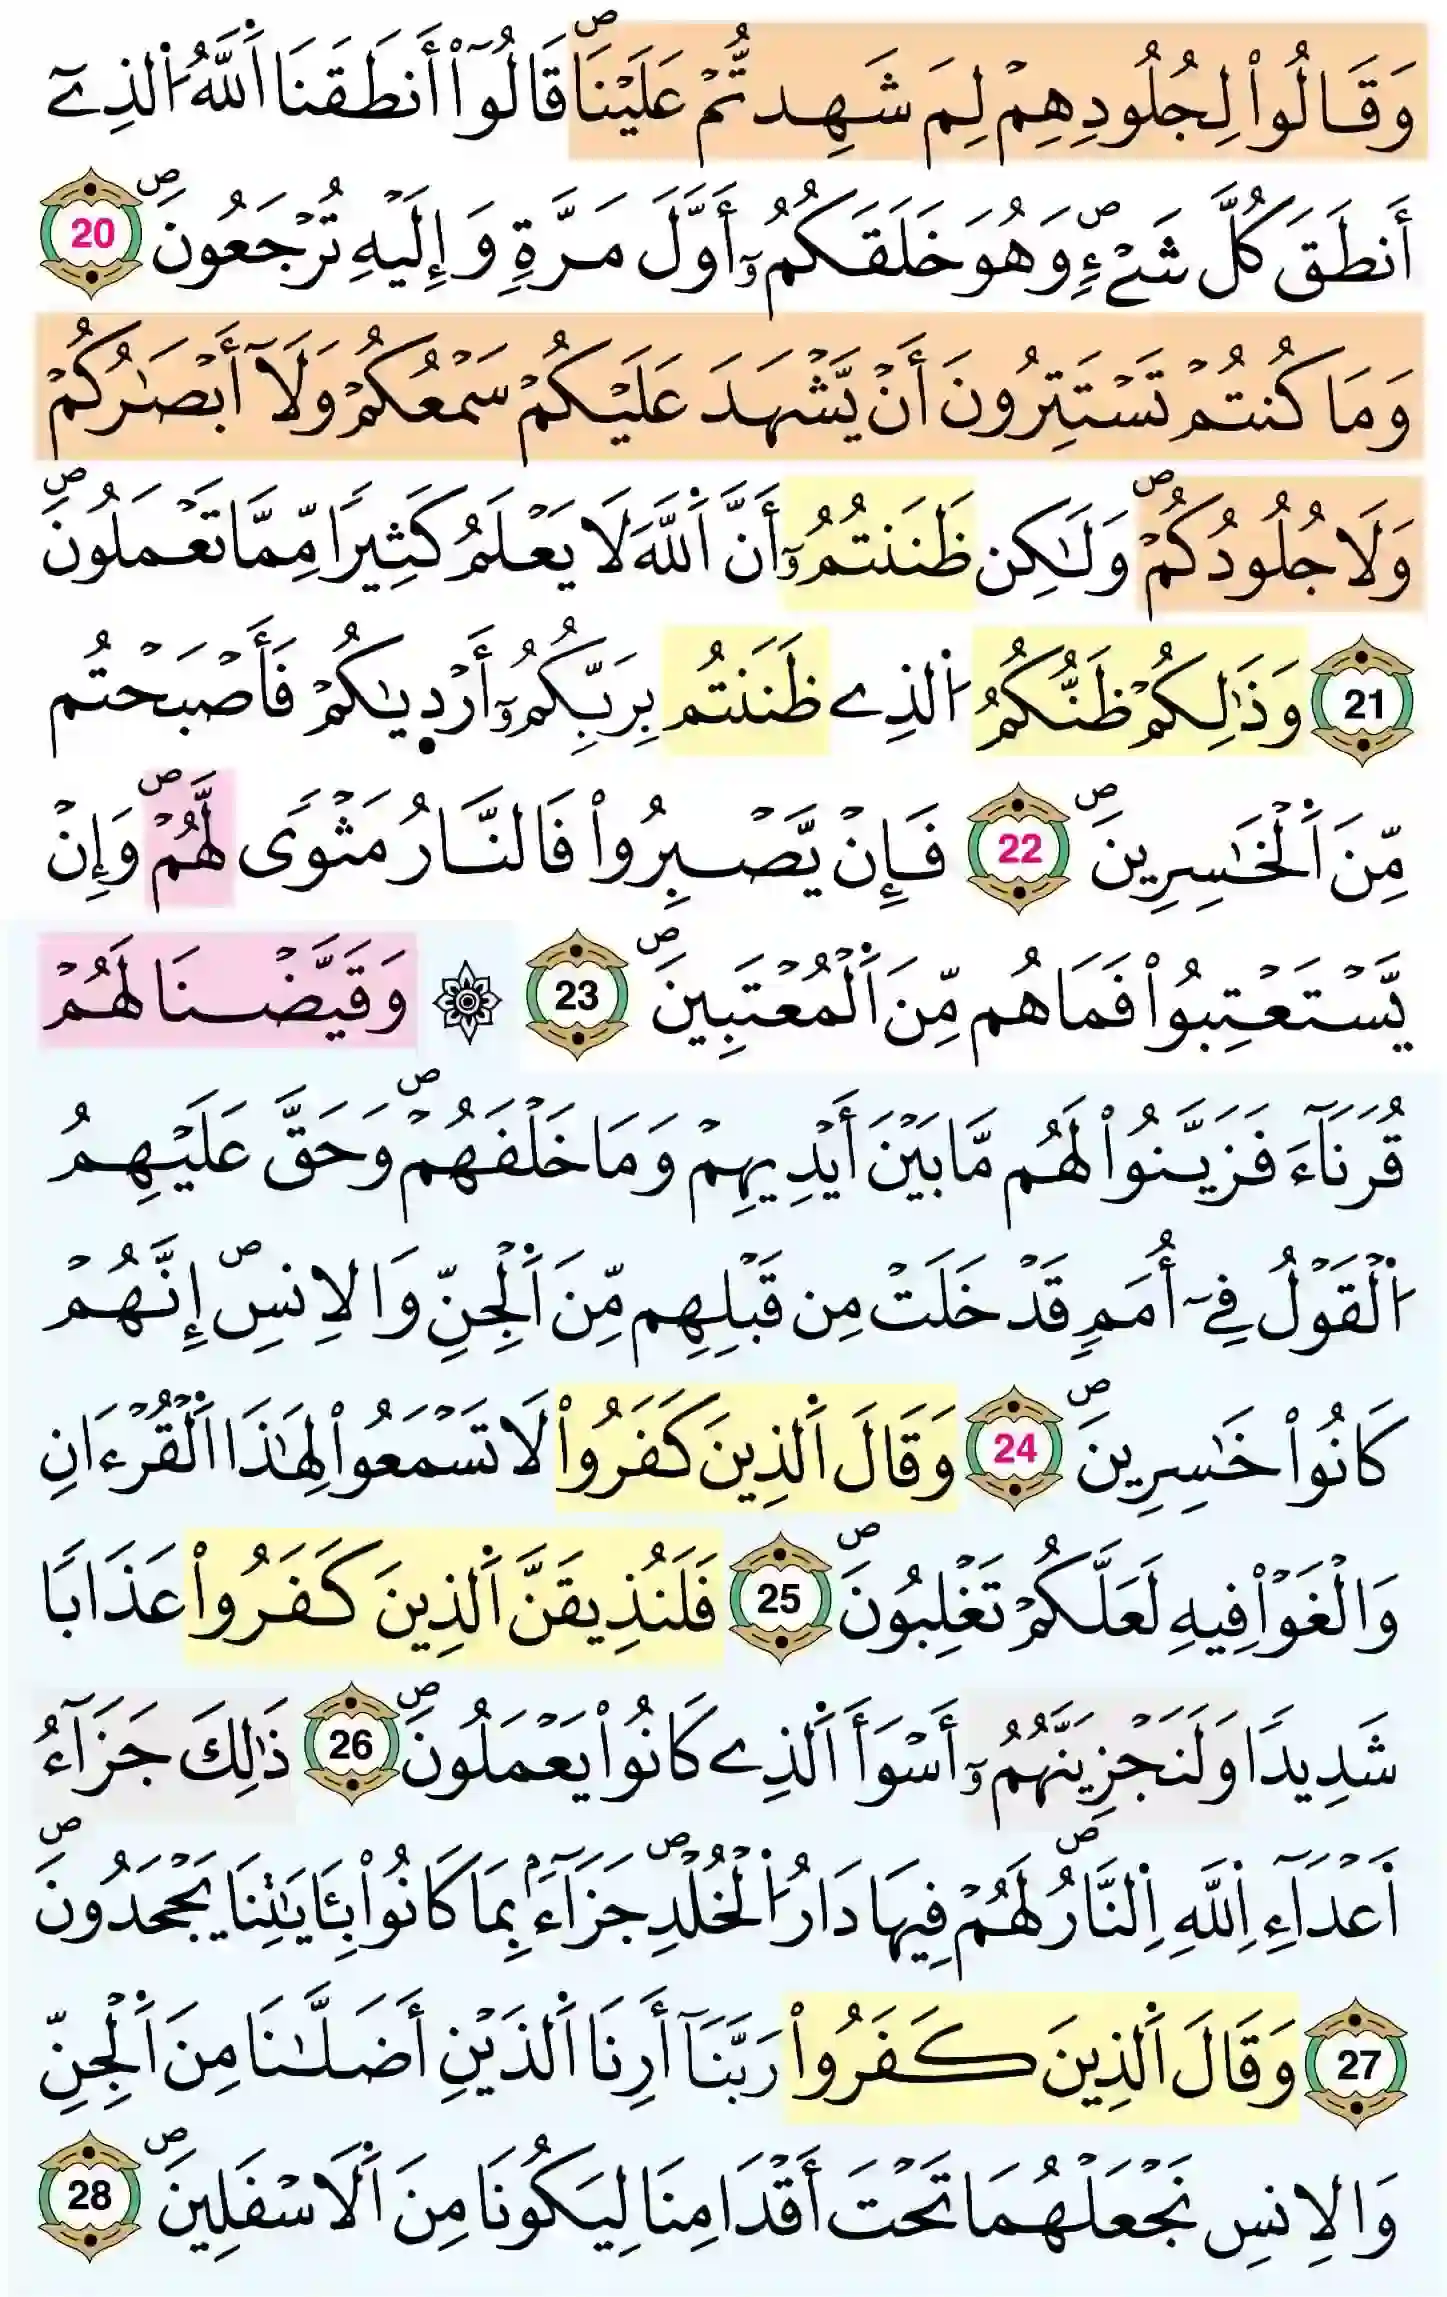 وَقَالُواْ لِجُلُودِهِمْ لِمَ شَهِدتُّمْ عَلَيْنَاۖ قَالُوٓاْ أَنطَقَنَا اَ۬للَّهُ اُ۬لذِےٓ
أَنطَقَ كُلَّ شَےْءٖۖ وَهُوَ خَلَقَكُمُۥٓ أَوَّلَ مَرَّةٖ وَإِلَيْهِ تُرْجَعُونَۖ 20
وَمَا كُنتُمْ تَسْتَتِرُونَ أَنْ يَّشْهَدَ عَلَيْكُمْ سَمْعُكُمْ وَلَآ أَبْصَٰرُكُمْ
وَلَا جُلُودُكُمْۖ وَلَٰكِن ظَنَنتُمُۥٓ أَنَّ اَ۬للَّهَ لَا يَعْلَمُ كَثِيراٗ مِّمَّا تَعْمَلُونَۖ
21 وَذَٰلِكُمْ ظَنُّكُمُ اُ۬لذِے ظَنَنتُم بِرَبِّكُمُۥٓ أَرْد۪يٰكُمْ فَأَصْبَحْتُم
مِّنَ اَ۬لْخَٰسِرِينَۖ 22 فَإِنْ يَّصْبِرُواْ فَالنَّارُ مَثْوىٗ لَّهُمْۖ وَإِنْ
يَّسْتَعْتِبُواْ فَمَا هُم مِّنَ اَ۬لْمُعْتَبِينَۖ 23 ۞ وَقَيَّضْنَا لَهُمْ
قُرَنَآءَ فَزَيَّنُواْ لَهُم مَّا بَيْنَ أَيْدِيهِمْ وَمَا خَلْفَهُمْۖ وَحَقَّ عَلَيْهِمُ
اُ۬لْقَوْلُ فِےٓ أُمَمٖ قَدْ خَلَتْ مِن قَبْلِهِم مِّنَ اَ۬لْجِنِّ وَالِانسِۖ إِنَّهُمْ
كَانُواْ خَٰسِرِينَۖ 24 وَقَالَ اَ۬لذِينَ كَفَرُواْ لَا تَسْمَعُواْ لِهَٰذَا اَ۬لْقُرْءَانِ
وَالْغَوْاْ فِيهِ لَعَلَّكُمْ تَغْلِبُونَۖ 25 فَلَنُذِيقَنَّ اَ۬لذِينَ كَفَرُواْ عَذَاباٗ
شَدِيداٗ وَلَنَجْزِيَنَّهُمُۥٓ أَسْوَأَ اَ۬لذِے كَانُواْ يَعْمَلُونَۖ 26 ذَٰلِكَ جَزَآءُ
اَ۟عْدَآءِ اِ۬للَّهِ اِ۬لنَّارُۖ لَهُمْ فِيهَا دَارُ اُ۬لْخُلْدِۖ جَزَآءَۢ بِمَا كَانُواْ بِـَٔايَٰتِنَا يَجْحَدُونَۖ
27 وَقَالَ اَ۬لذِينَ كَفَرُواْ رَبَّنَآ أَرِنَا اَ۬لذَيْنِ أَضَلَّٰنَا مِنَ اَ۬لْجِنِّ
وَالِانسِ نَجْعَلْهُمَا تَحْتَ أَقْدَامِنَا لِيَكُونَا مِنَ اَ۬لَاسْفَلِينَۖ 28